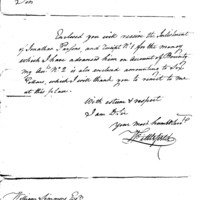 Sir
Enclosed you will receive the Inlistment
of Jonathan Parsons, and receipt No. 1, for the money
which I have advanced them on account of Bounty
my Acct. No. 2 is also enclosed amounting to
which I will thank you to remit to me
at this place.
With esteem & respect
I am D. Sir
your most humble Servt.
William Simmons Esqr.